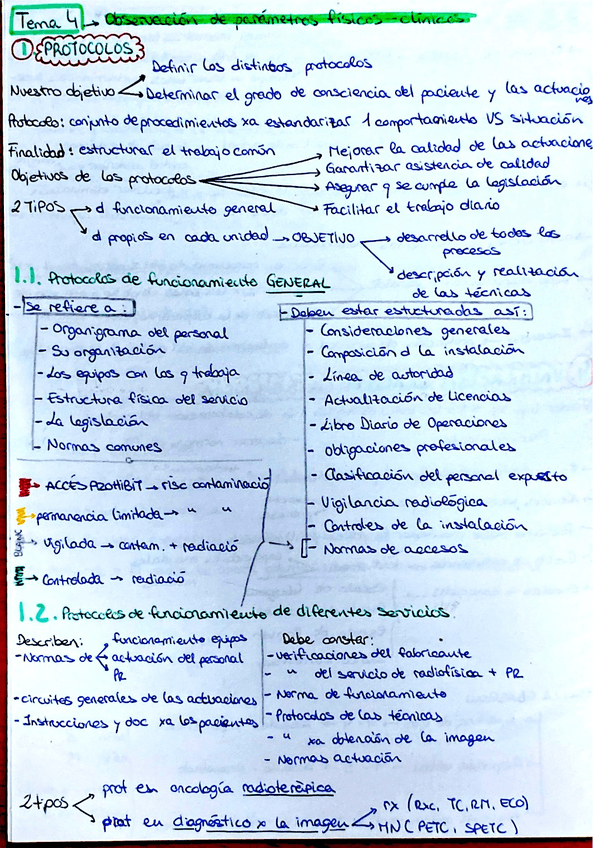 Tema 4 → Observación de parámetros físicos-clínicos
① PROTOCOLOS
Definir los distintos protocolos
Nuestro objetivo Determinar el grado de consciencia del paciente y las actuaciones
Protocolo: conjunto de procedimientos xa estandarizar 1 comportamiento VS situación
Finalidad: estructurar el trabajo común
Objetivos de los protocolos
Mejorar la calidad de las actuacione
Garantizar asistencia de calidad
Asegurar q se cumple la legislación
Facilitar el trabajo diario
2 TIPOS → d funcionamiento general
d propios en cada unidad → OBJETIVO → desarrollo de todos los procesos
descripción y realización
de las técnicas
1.1. Protocolos de funcionamiento GENERAL
- Se refiere a:
- Organigrama del personal
- Su organización
- Los equipos con los q trabaja
- Estructura física del servicio
- La legislación
- Normas comunes
- Deben estar estructuradas así:
- Consideraciones generales
- Composición d la instalación
- Línea de autoridad
- Actualización de Licencias
- Libro Diario de Operaciones
- obligaciones profesionales
- Clasificación del personal expuesto
- Vigilancia radiológica
- Controles de la instalación
- Normas de accesos
→ ACCÉS PROHIBIT → risc contaminació
→ permanencia limitada → " "
BLANC → vigilada → contam. + radiació
→ Controlada → radiació
1.2. Protocolos de funcionamiento de diferentes servicios
Describen:
- Normas de
funcionamiento equipos
actuación del personal
PR
- circuitos generales de las actuaciones
- Instrucciones y doc xa los pacientes
Debe constar:
- verificaciones del fabricante
- " del servicio de radiofísica + PR
- Norma de funcionamiento
- Protocolos de las técnicas
- " xa obtención de la imagen
- Normas actuación
2 tipos
prot en oncología radioterápica
prot en diagnóstico x la imagen
rx (Rxc, TC, RM, ECO)
MN (PETC, SPETC)